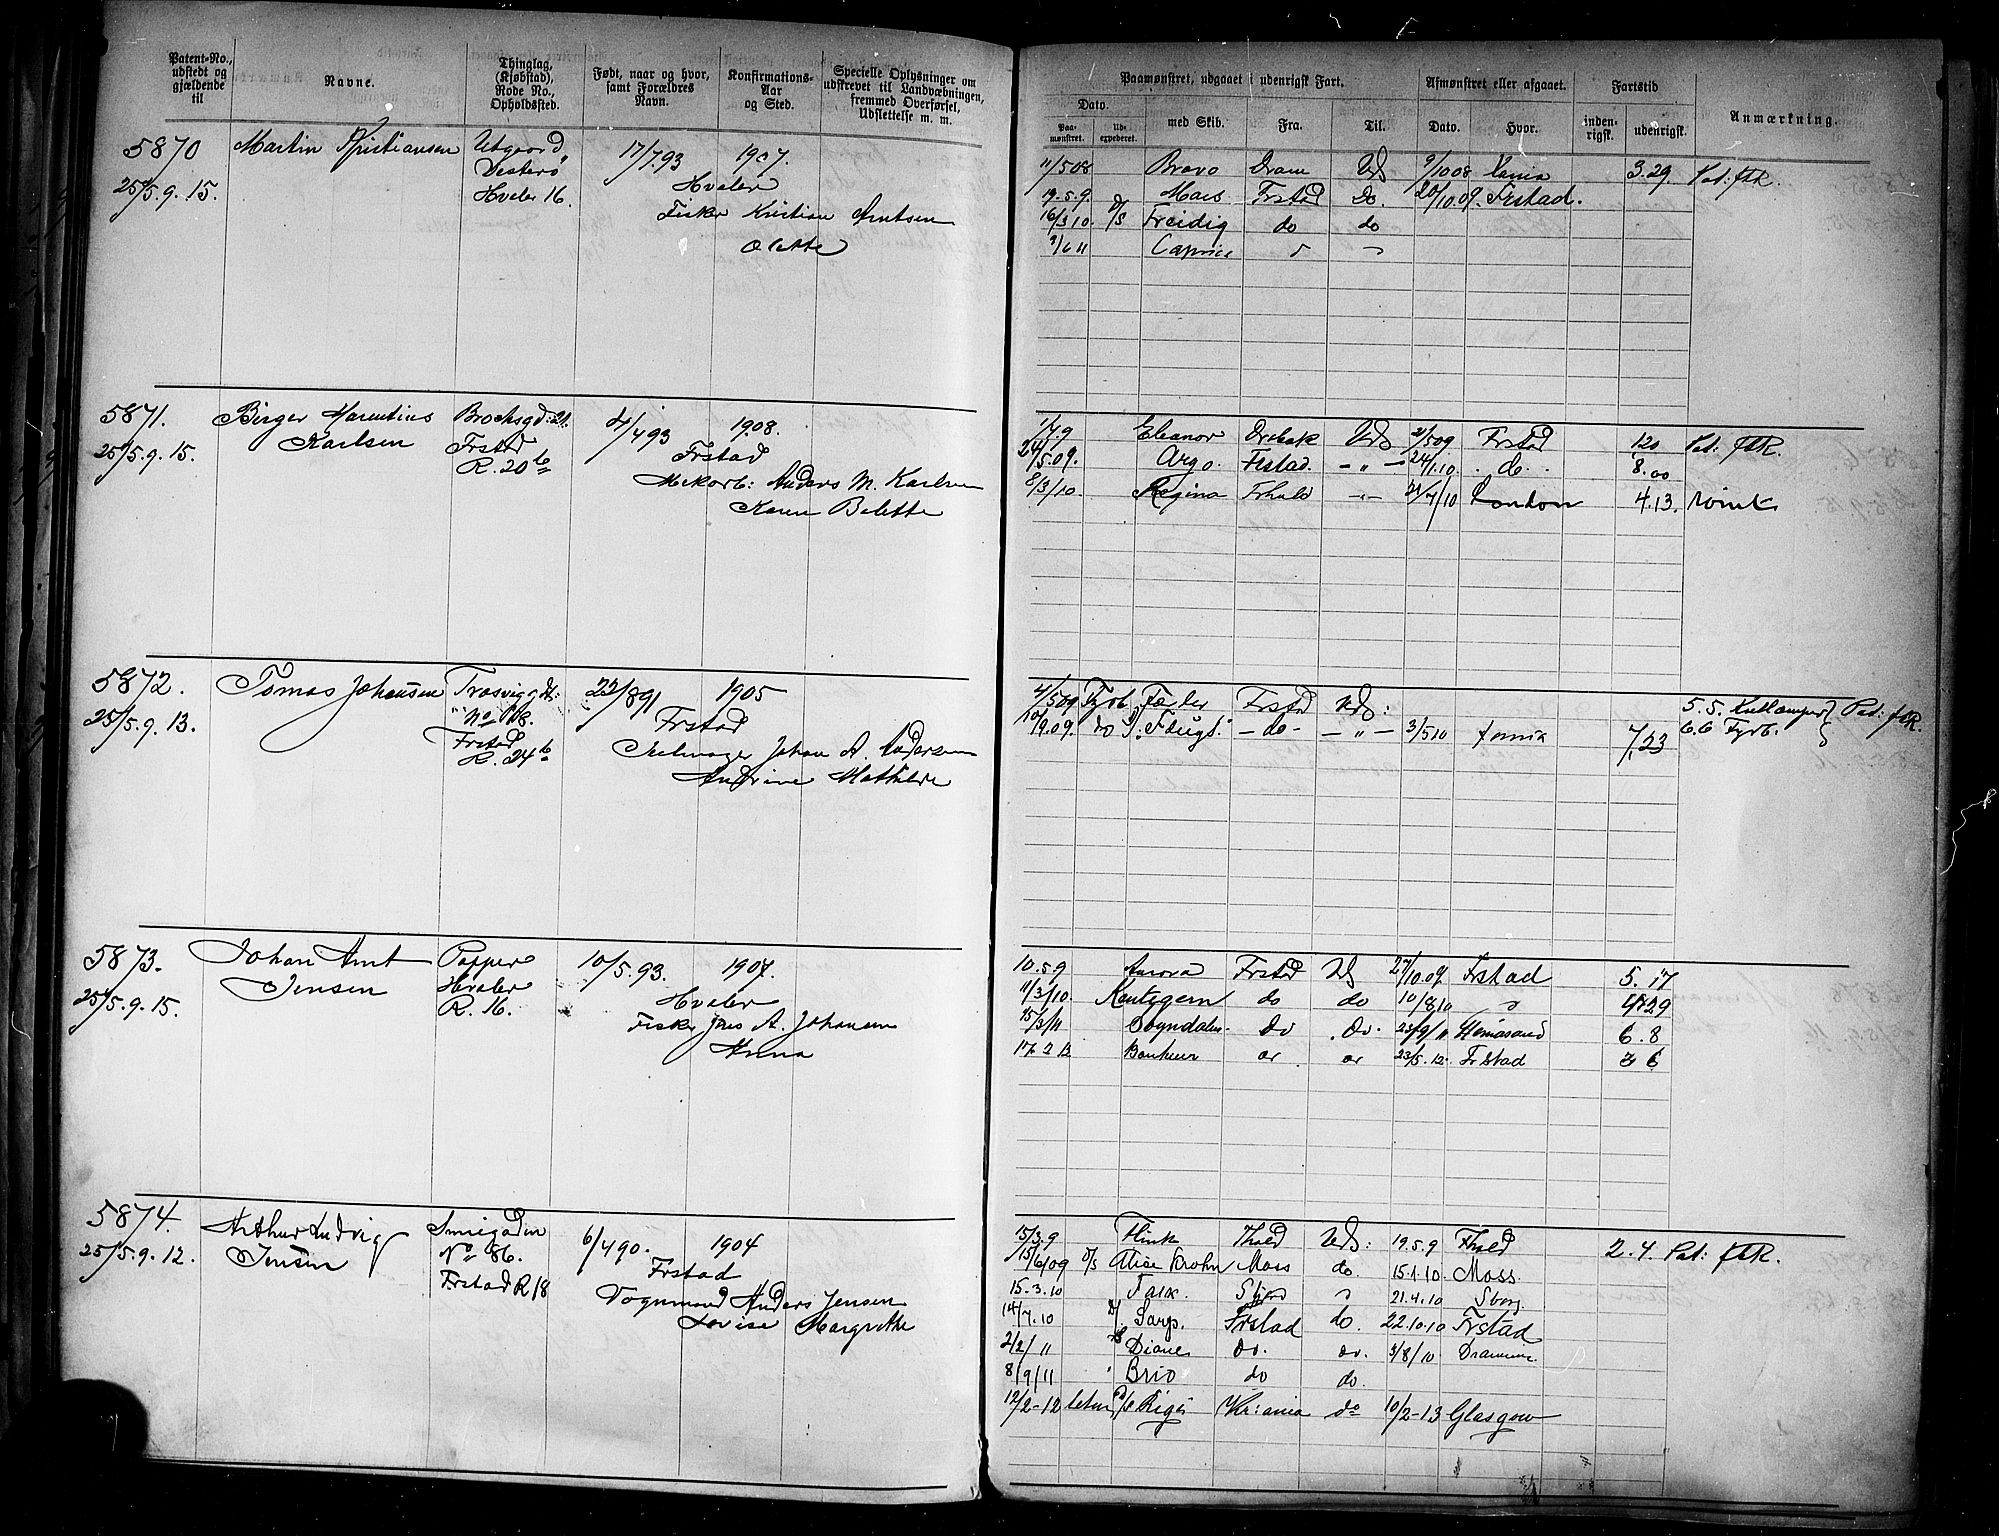 Patent-No., udstedt og gjældende til
Navne.
Thinglag, (Kjøbstad), Rode No., Opholdssted.
Født, naar og hvor, samt Forældres Navn.
Konfirmations-Aar og Sted.
Specielle Oplysninger om udskrevet til Landværbningen, fremmed Overførsel, Udslettelse m. m.
Paamønstret, udgaaet i udenrigsk Fart.
Afmønstret eller afgaaet.
Fartstid
Anmærkning.
Dato.
Paa-mønstret.
Ud-expederet.
med Skib.
Fra.
Til.
Dato.
Hvor.
inden-rigsk.
udenrigsk.
5870 Martin Kristiansen Utgaard 17/7.93 1907.
Vesterø Hvaler
25/5.9.15. Hvaler 16. Fisker Kristian Arntsen
Olette
11/5 08 Bravo Dram Uds 9/10 08 Kania 3.29. Pat: ftR.
19.5.9. Maes Frstad Do. 20/10.09. Frstad.
16/3 10 D/S Freidig do do
9/6 11 Caprice
5871. Birger Marentius Brochsgd: 21. 4/4 93 1908.
Karlsen Frstad Frstad
25/5.9.15. R. 20 b Mekarb: Anders M. Karlsen
Karen Bolette
1/4.9 Eleanor Drøbak Uds 2/5 09 Frstad 120 Pat: ftR.
24/5.09. Argo. Frstad. — „ — 24/1.10. do. 8.00
8/3/10. Regina Frhald — „ — 21/7/10 London 4.13.
5872. Tomas Johansen Trosviggdt: 22/8 91 1905
No 108. Frstad
25/5.9.13. Frstad Seilmager Johan A. Andersen
R. 24 b Andrine Mathilde
4/5 09 Fyrb. Færder Frstad Uds: 5.5. Kullemper Pat: ftR.
10/9.09. do S. Flugt. — do — — „ — 3/5 10 7.23 6.6 Fyrb.
5873. Johan Arnt Papper 10/5.93. 1907.
Jensen Hvaler Hvaler
25/5.9.15. R. 16. Fisker Jens A. Johansen
Anna
10.5.9 Aurora Frstad Uds 27/10.09 Frstad 5.17
11/3/10. Kentigern do do 10/8/10 4.29
15/3/11 Sogndalen do Do. 23/9/11 Hernösand 6.8
17/2 12 Bonheur 23/5.12. Frstad 3 6
5874. Arthur Ludvig Smigaden 6/4 90. 1904
Jensen No 86. Frstad
25/5.9.12. Frstad R 18 Vognmand Anders Jensen
Lovise Margrethe
15/3.9 Flink Fhald Uds: 19.5.9 Fhald 2.4. Pat: ftR.
15/6/09 D/S Alice Krohn Moss do. 15.1.10. Moss.
15.3.10 Falk. 21.4.10 Sborg.
14/7.10 Sarp. Frstad do. 22.10.10 Frstad
2/2/11 Diana do. do. 3/8/10 Drammen.
8/9/11 Brio do do.
12/2-12 D/S Rigi Kr:ania do 10/2-13 Glasgow